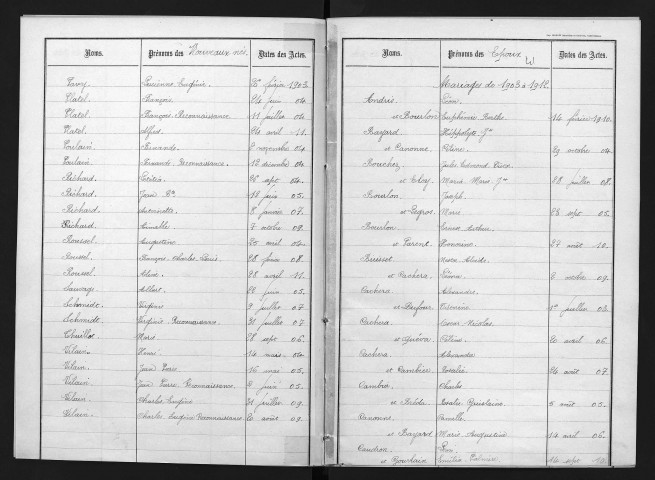 Noms. Prénoms des Nouveaux nés. Dates des Actes.
Pavy Lucienne Eugénie. 26 février 1903.
Platel François 24 juin 04.
Platel François Reconnaissance. 11 juillet 04.
Platel Alfred 24 avril 11.
Poulain Fernande 6 novembre 04
Poulain Fernande Reconnaissance. 12 décembre 04
Richard 26 sept 04.
Richard Jean Bte 18 juin 05.
Richard Antoinette 8 janvier 07.
Richard Armable 7 octobre 09.
Roussel Augustine 25 avril 04
Roussel François Charles Louis 28 février 08.
Roussel Aline 28 avril 11.
Sauvage Albert 26 juin 05.
Schmidt Virginie 9 juillet 07
Schmidt Virginie Reconnaissance. 31 juillet 07
Thuillot Marc 18 sept 06.
Vilain Henri 14 mars 04
Vilain Jean Louis 16 mai 05.
Vilain Jean Louis Reconnaissance. 8 juin 05.
Vilain Charles Eugène 31 juillet 09.
Vilain Charles Eugène Reconnaissance. 20 août 09.
Noms. Prénoms des Epoux Dates des Actes.
Mariages de 1903 à 1912.
Andris Léon.
et Bourlon Euphémie Berthe 14 février 1910.
Bayard Hippolyte Jh
et Canonne Elvire 29 octobre 04.
Bouchez Jules Edmond
et Eloy Maria Marie Jne 28 juillet 08.
Bourlon Joseph
et Marie 23 sept 05.
Bourlon Arthur
et Parent Romaine 27 août 10.
Buisset
et Cachera Léonie 2 octobre 09.
Cachera Alexandre
et Dufour 1er juillet 03.
Cachera Nicolas
et Céline 20 avril 06.
Cachera Alexandre
et Cambier Rosalie 24 août 07.
Cambra Charles
et Rosalie Ghislaine 5 août 05.
Canonne Camille
et Bayard Marie Augustine 14 avril 06.
Caudron
et Bourlain Emélie Palmire 14 sept